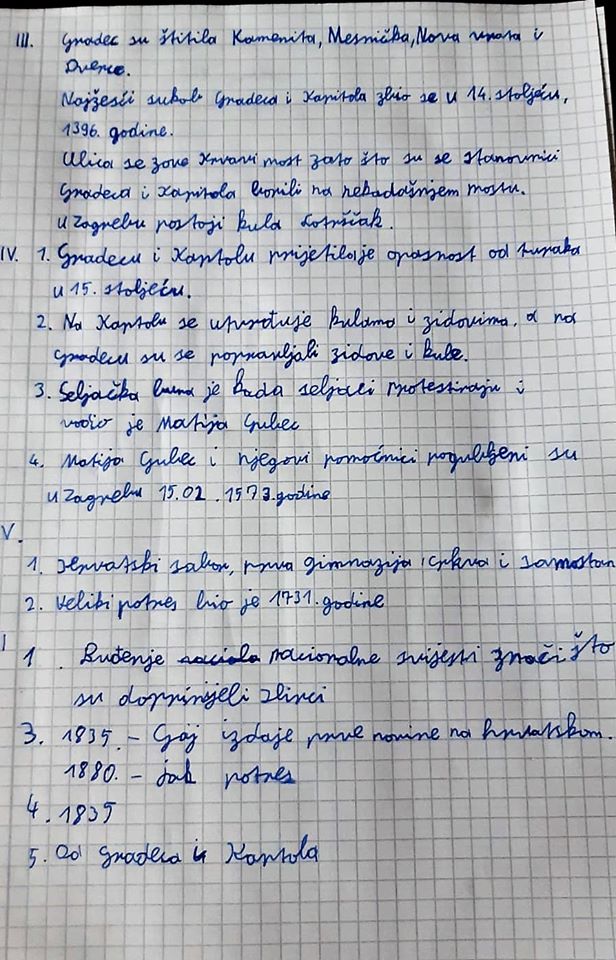 III. Gradec su štitila Kamenita, Mesnička, Nova vrata i
Dverce.
Najžešći sukob Gradeca i Kaptola zbio se u 14. stoljeću,
1396. godine.
Ulica se zove Krvavi most zato što su se stanovnici
Gradeca i Kaptola borili na nekadašnjem mostu.
U Zagrebu postoji kula Lotrščak.
IV. 1. Gradecu i Kaptolu prijetilo je opasnost od turaka
u 15. stoljeću.
2. Na Kaptolu se utvrđuje kulama i zidovima, a na
Gradecu su se popravljali zidove i kule.
3. Seljačka buna je kada seljaci protestiraju i
vodio je Matija Gubec
4. Matija Gubec i njegovi pomoćnici pogubljeni su
u Zagrebu 15.02.1573. godine
V.
1. Hrvatski sabor, prva gimnazija, crkva i samostan
2. Veliki potres bio je 1731. godine
I
1. Buđenje nacionalne svijesti znači što
su doprinijeli Ilirci
3. 1835. - Gaj izdaje prve novine na hrvatskom.
1880. - jak potres
4. 1835
5. Od Gradeca i Kaptola